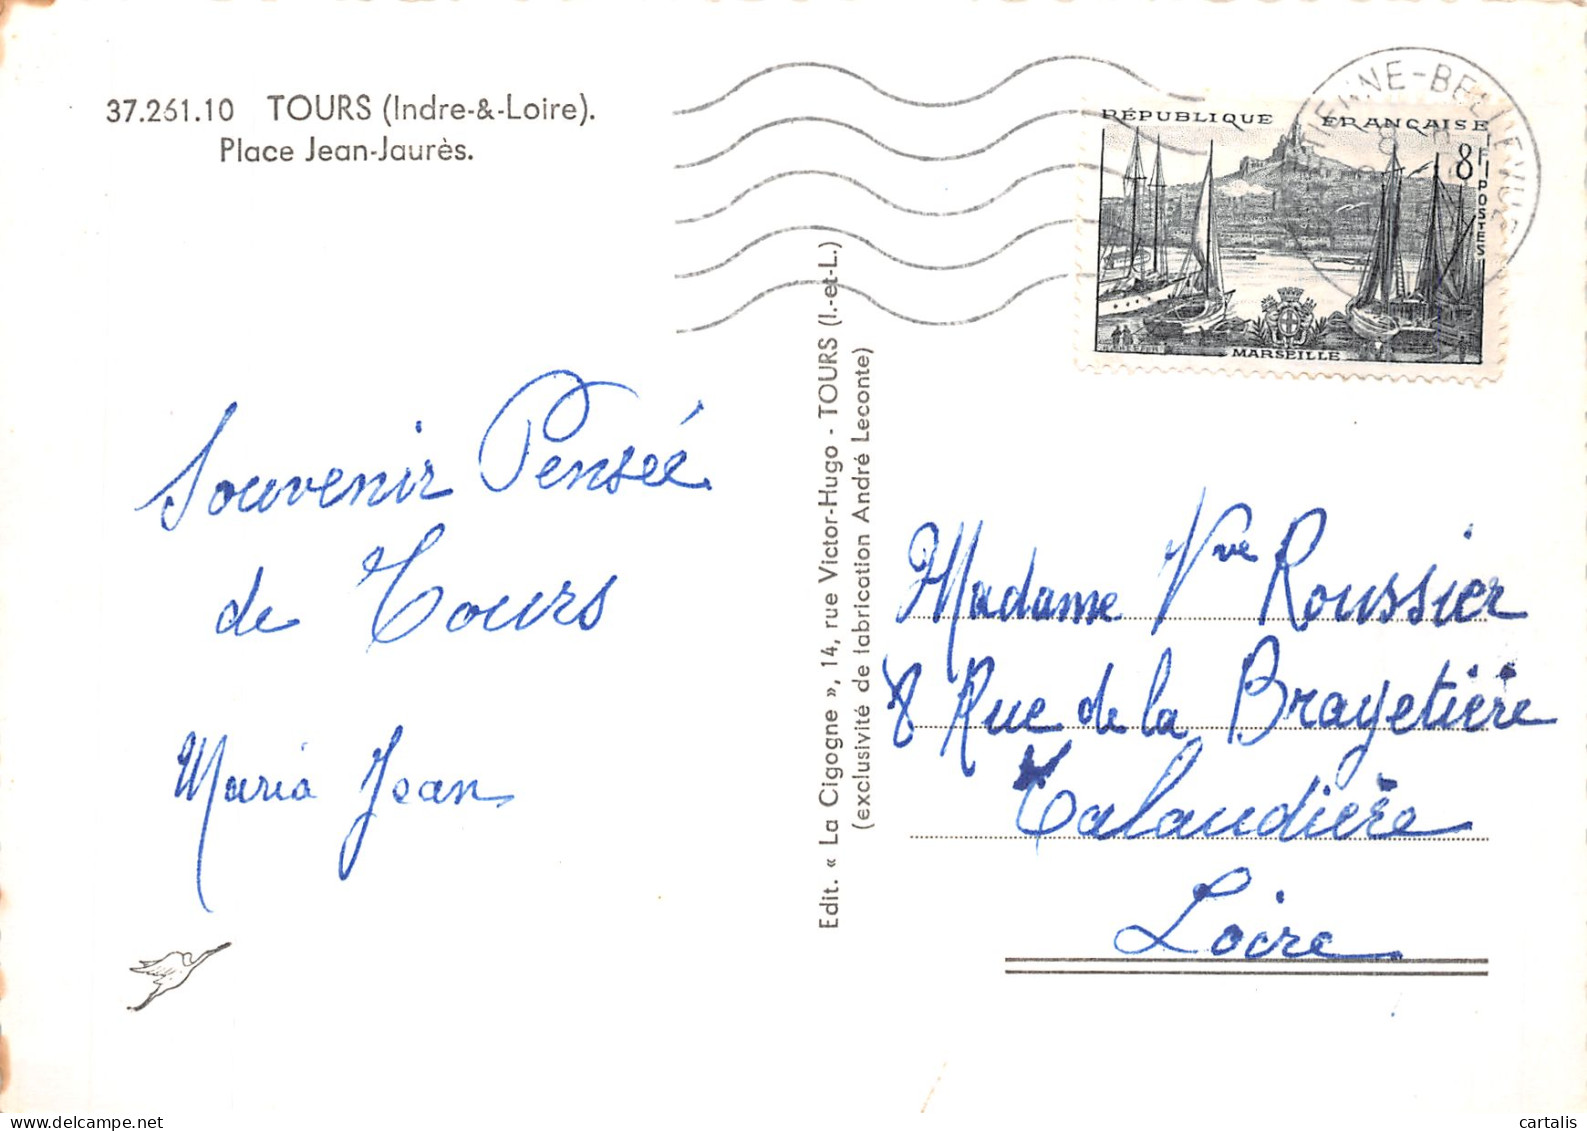 37.261.10 TOURS (Indre-&-Loire).
Place Jean-Jaurès.
RÉPUBLIQUE FRANÇAISE
8F
POSTES
MARSEILLE
TIENNE-BELLEVUE
Souvenir Pensée
de Tours
Maria Jean
Edit. « La Cigogne », 14, rue Victor-Hugo - TOURS (I.-et-L.)
(exclusivité de fabrication André Leconte)
Madame Vve Roussier
8 Rue de la Brayetière
Talaudière
Loire
cartalis